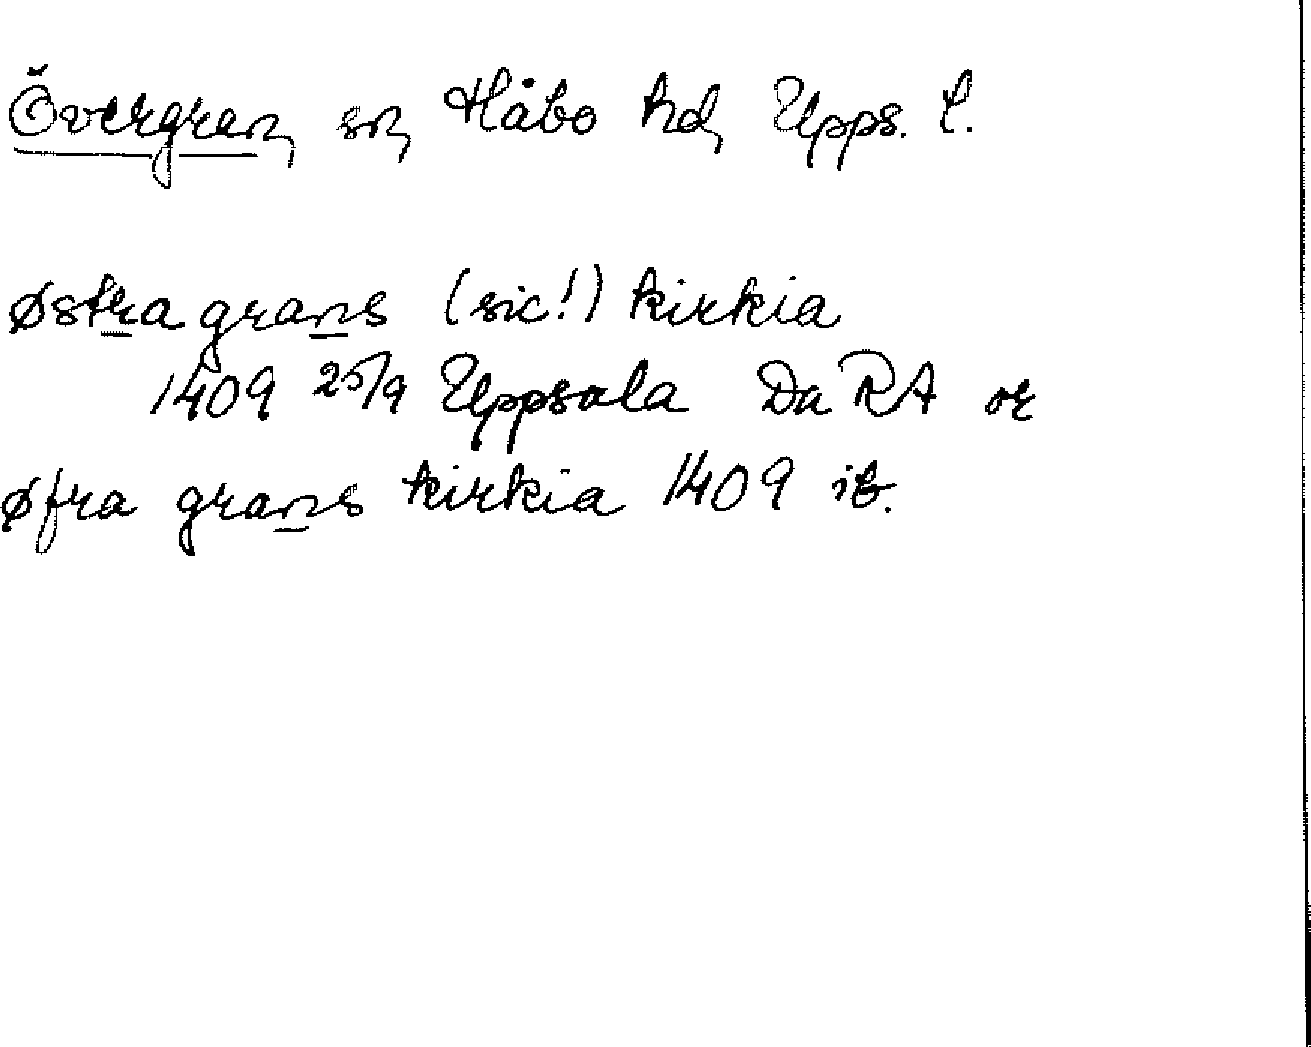 Övergran, sn, Håbo hd, Upps. l.
østra grans (sic!) kirkia
1409 25/9 Uppsala Da RA or
øfra grans kirkia 1409 ib.